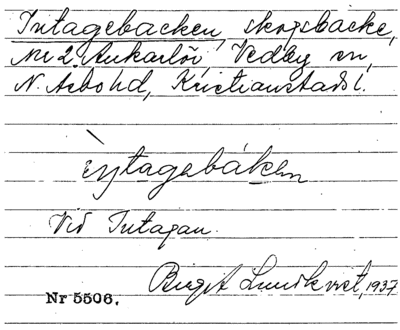 Intagebacken, skogsbacke,
N:r 2 Ankarlöv, Vedby sn,
N. Åsbo hd, Kristianstads l.
ı̀ŋtagebáken
Vid Intagan.
Birgit Lundkvist, 1937
Nr 5506.